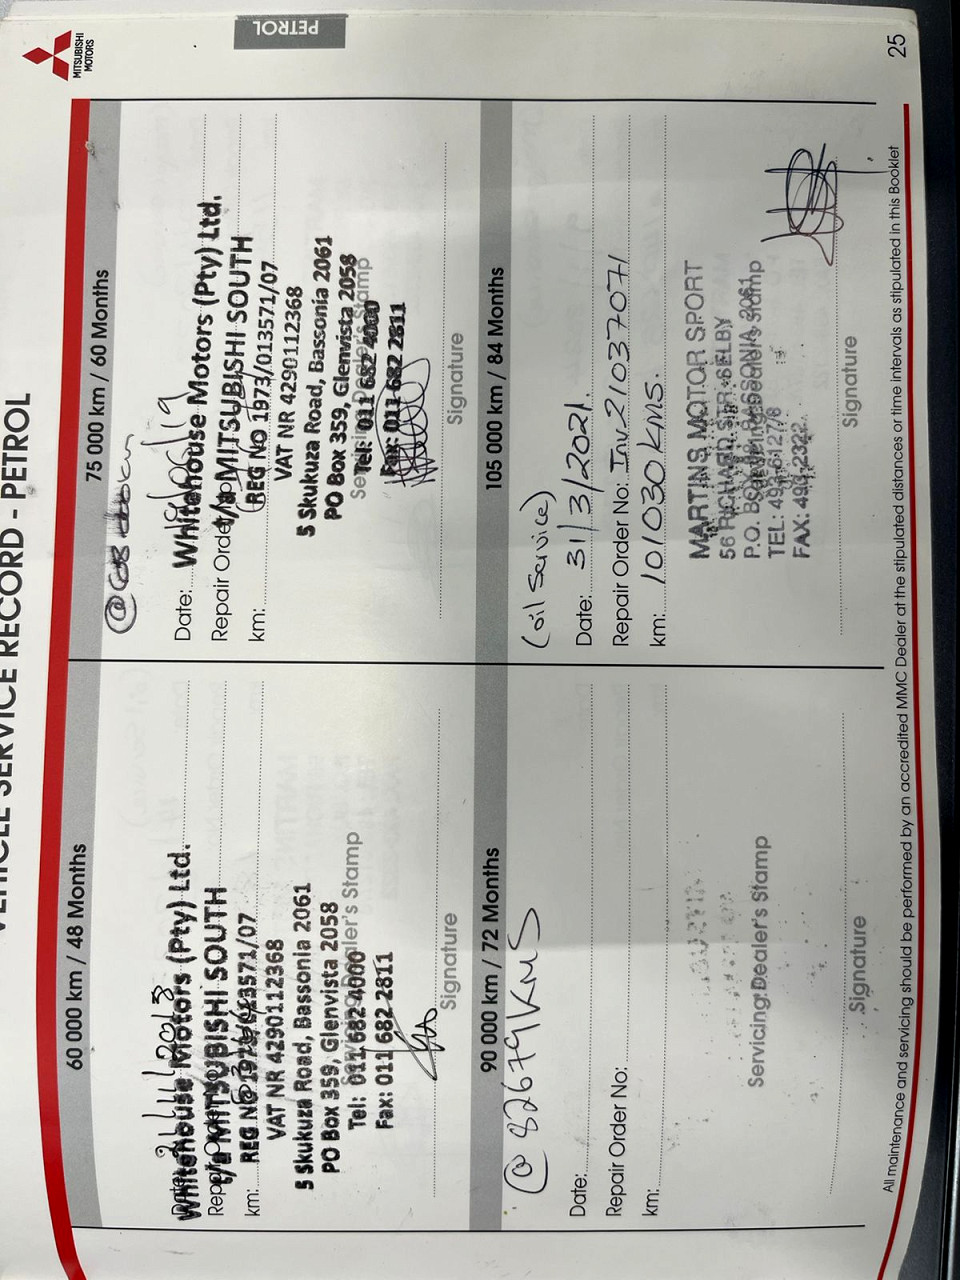 VEHICLE SERVICE RECORD - PETROL
MITSUBISHI
MOTORS
PETROL
60 000 km / 48 Months
Whitehouse Motors (Pty) Ltd.
t/a MITSUBISHI SOUTH
REG NO 1973/013571/07
km:
VAT NR 4290112368
5 Skukuza Road, Bassonia 2061
PO Box 359, Glenvista 2058
Servicing Dealer's Stamp
Tel: 011 682 4000
Fax: 011 682 2811
Signature
75 000 km / 60 Months
@
Date:
Whitehouse Motors (Pty) Ltd.
Repair Order
t/a MITSUBISHI SOUTH
km:
REG NO 1973/013571/07
VAT NR 4290112368
5 Skukuza Road, Bassonia 2061
PO Box 359, Glenvista 2058
Servicing Dealer's Stamp
Tel: 011 682 4000
Fax: 011 682 2811
Signature
90 000 km / 72 Months
@ 82679KMS
Date:
Repair Order No:
km:
Servicing Dealer's Stamp
Signature
105 000 km / 84 Months
(oil Service)
Date: 31/3/2021.
Repair Order No: Inv-21037071
km: 101030kms.
MARTINS MOTOR SPORT
56 RICHARD STR. SELBY
P.O. BOX BASSONIA 2061
Servicing Dealer's Stamp
TEL: 493-
FAX: 493-2322
Signature
All maintenance and servicing should be performed by an accredited MMC Dealer at the stipulated distances or time intervals as stipulated in this Booklet
25